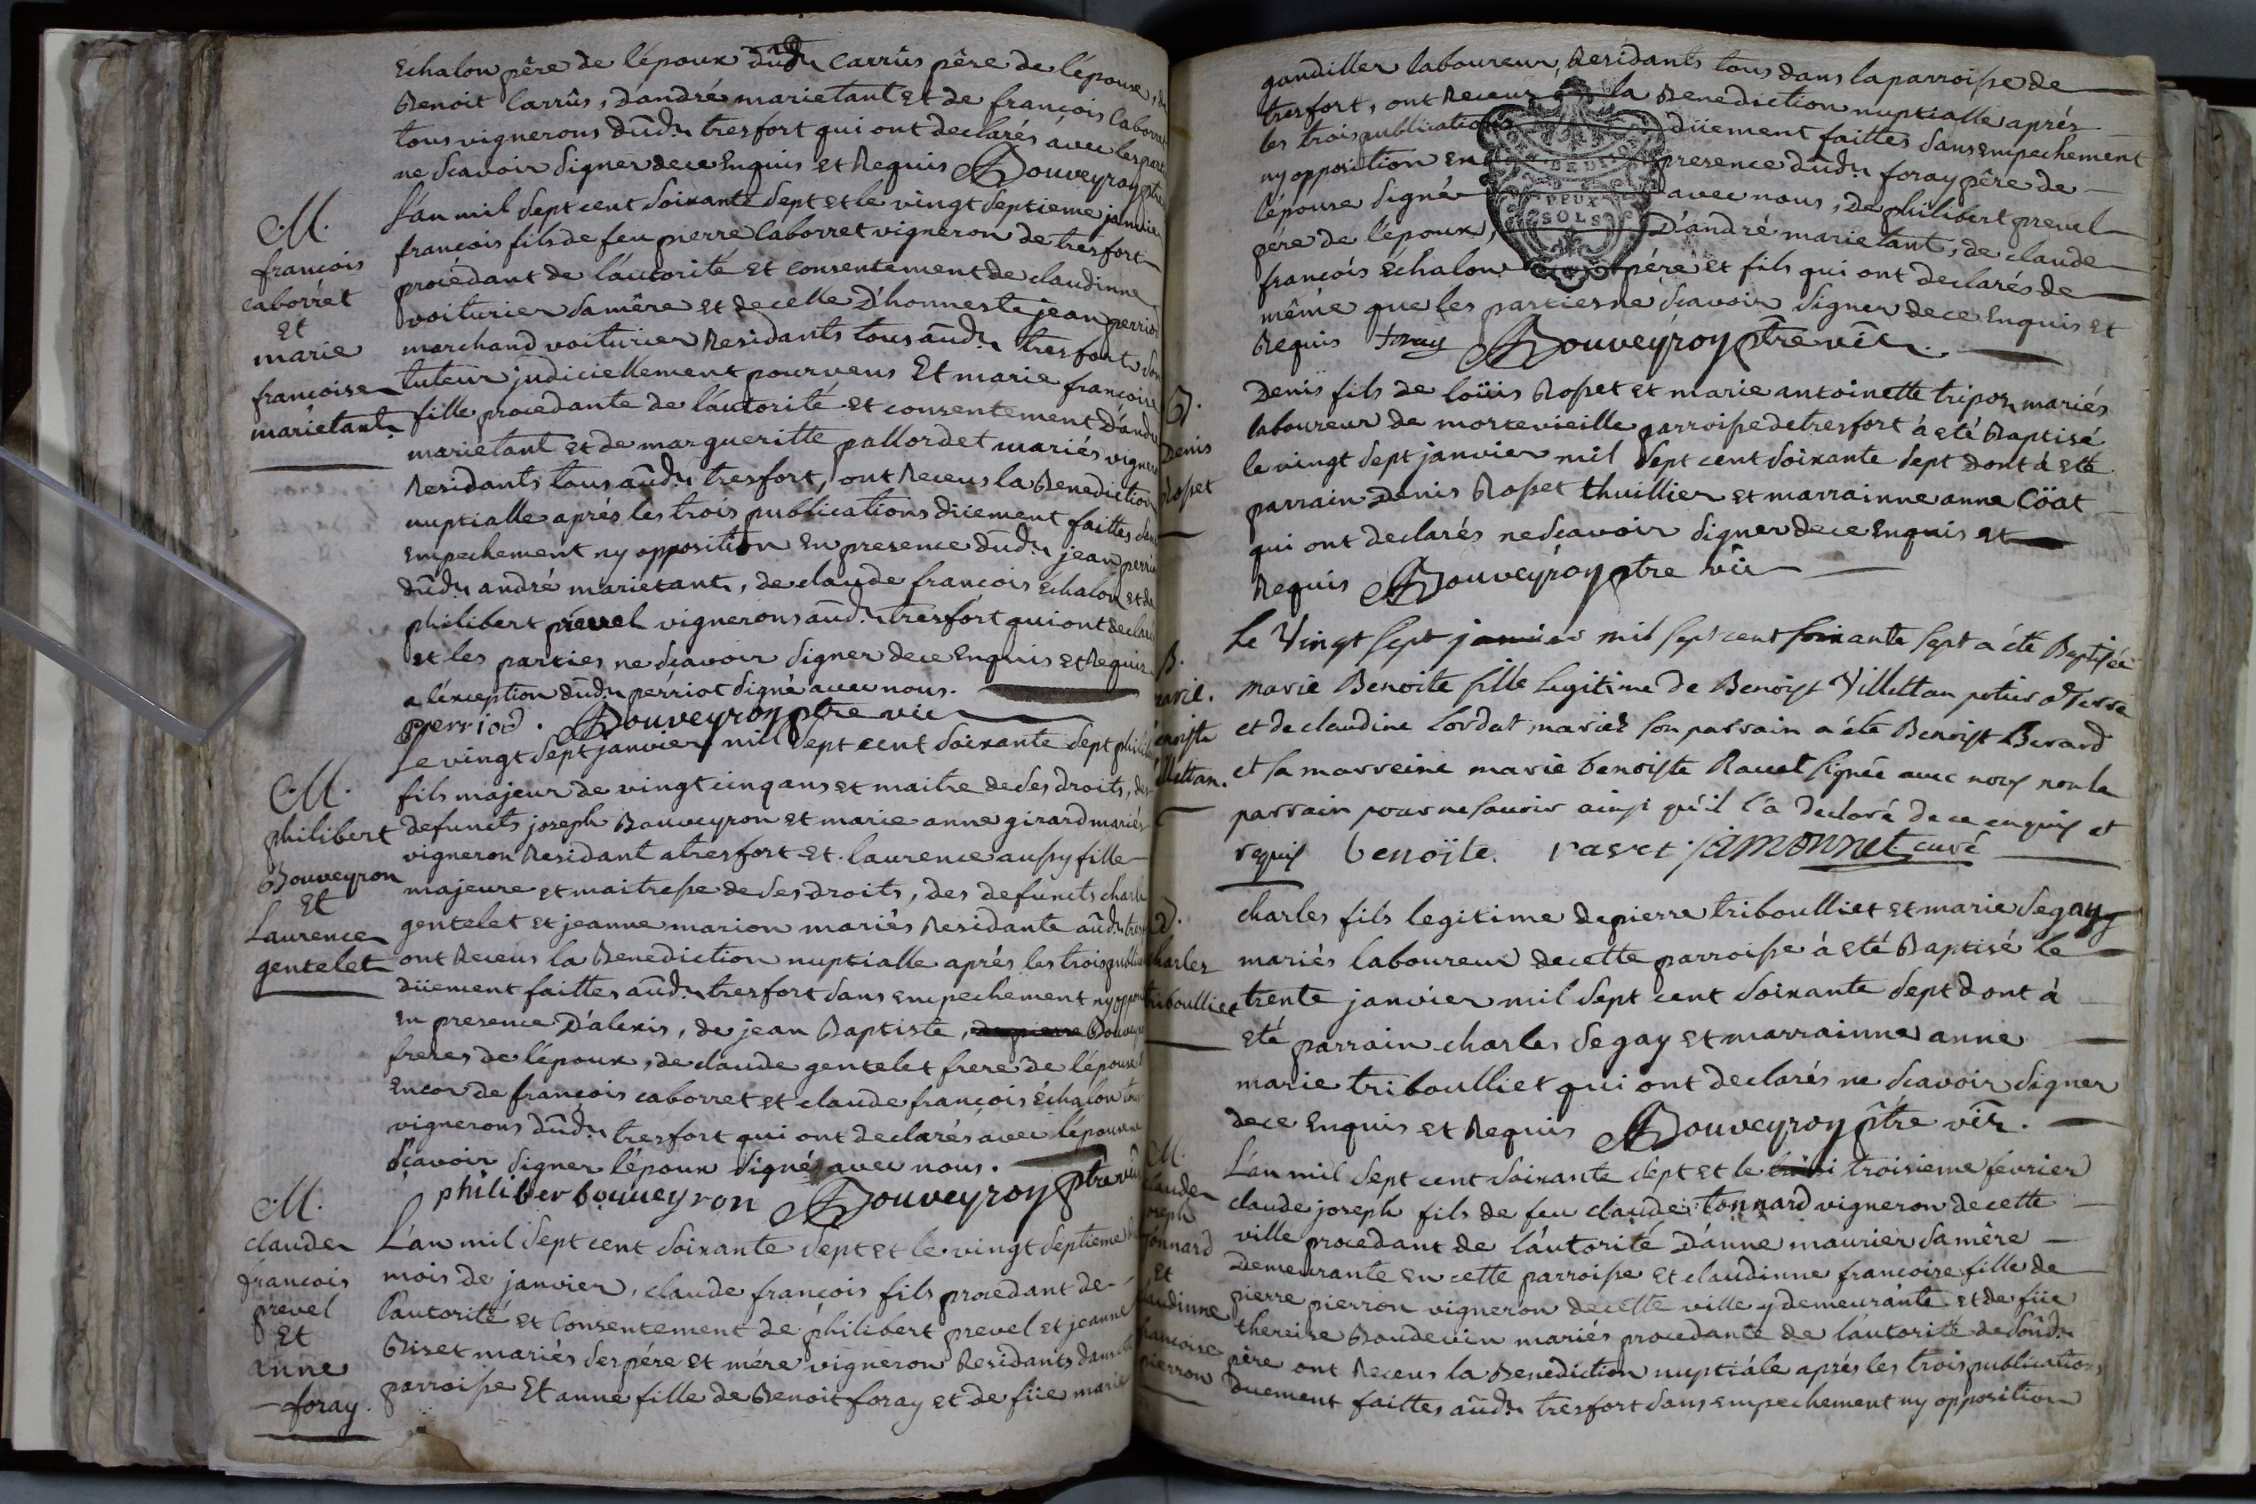 Echalon père de l'époux dûd. Carrûs père de l'épouse, de
Benoit Carrûs, d'andré marietant et de françois Caborret
tous vignerons dûd. tresfort qui ont declarés avec les part
ne scavoir signer de ce Enquis et Requis Bouveyron ptre
M.
françois
caborret
Et
marie
françoise
marietant
L'an mil sept cent soixante sept et le vingt septieme janvier
françois fils de feu pierre Caborret vigneron de tresfort
procédant de l'autorité et consentement de claudinne
voiturier sa mère et de celle d'honneste jean perriod
marchand voiturier Residants tous aûd. tresfort son
tuteur judiciellement pourveus Et marie françoise
fille procedante de l'autorité et consentement d'andré
marietant et de margueritte pallordet mariés vigneron
Residants tous aûd. tresfort, ont Receus la Benediction
nuptialle aprés les trois publications düement faittes sans
Empechement ny opposition En presence dûd. jean perriod
dûd. andré marietant, de claude françois Echalon et de
philibert prevel vignerons aûd. tresfort qui ont declaré
et les parties ne scavoir signer de ce Enquis et Requis
a l'exception dûd. périot signé avec nous.
perriod. Bouveyron ptre vic
M.
philibert
Bouveyron
Et
Laurence
gentelet
Le vingt sept janvier mil sept cent soixante sept philibert
fils majeur de vingt cinq ans et maitre de ses droits, des
defuncts joseph Bouveyron et marie anne girard mariés
vigneron Residant a tresfort Et laurence aussy fille
majeure et maitresse de ses droits, des defuncts charle
gentelet et jeanne marion mariés Residante aûd. tresf
ont Receus la Benediction nuptialle aprés les trois publicat
düement faittes aûd. tresfort sans empechement ny opposit
en presence d'alexis, de jean Baptiste, de pierre Bouveyr
freres de l'époux, de claude gentelet frere de l'épouse
Encor de françois caborret et claude françois Echalon tous
vignerons dûd. tresfort qui ont declarés avec l'épouse ne
scavoir signer l'époux signés avec nous.
philiber bouueyron Bouveyron ptre vic
M.
claude
françois
prevel
Et
anne
foray
L'an mil sept cent soixante sept et le vingt septieme du
mois de janvier, claude françois fils procedant de
l'autorité et Consentement de philibert prevel et jeanne
Biset mariés ses pére et mére vigneron Residants dans cette
parroisse Et anne fille de Benoit foray et de fiie marie
gandiller laboureur, Residants tous dans la parroisse de
tresfort, ont Receus la Benediction nuptialle aprés
les trois publications düement faittes sans empechement
ny opposition en presence dûd. foray pére de
l'épouse signé avec nous, de philibert prevel
pére de l'époux, d'andré marietant, de claude
françois Echalon pére et fils qui ont declarés de
même que les parties ne scavoir signer de ce Enquis et
Requis foray Bouveyron ptre vic
DEUX
SOLS
B.
Denis
Rosset
Denis fils de loüis Rosset et marie antoinette tripoz mariés
laboureur de mortevieille parroisse de tresfort à eté Baptisé
le vingt sept janvier mil sept cent soixante sept dont à eté
parrain Denis Rosset thuillier et marrainne anne Cöat
qui ont declarés ne scavoir signer de ce Enquis et
Requis Bouveyron ptre vic
B.
marie
benoiste
villettan.
Le Vingt sept janvier mil sept cent soixante sept a été Baptisée
marie Benoite fille legitime de Benoist Villettan potier de Terre
et de claudine Cordat mariés son parrain a été Benoist Berard
et sa marreine marie benoiste Ravet signée avec nous non le
parrain pour ne savoir ainsi qu'il l'a declaré de ce enquis et
requis benoïte ravet jamonnet curé
B.
charles
triboulliet
charles fils legitime de pierre triboulliet et marie Segay
mariés laboureur de cette parroisse à eté Baptisé le
trente janvier mil sept cent soixante sept dont à
eté parrain charles Segay et marrainne anne
marie triboulliet qui ont declarés ne scavoir signer
de ce Enquis et Requis Bouveyron ptre vic.
M.
claude
joseph
tonnard
Et
claudinne
françoise
pierron
L'an mil sept cent soixante sept et le troisieme février
claude joseph fils de feu claude tonnard vigneron de cette
ville procedant de l'autorité d'anne maurier sa mére
Demeurante en cette parroisse et claudinne françoise fille de
pierre pierron vigneron de cette ville y demeurante et de fiie
thereise Baudevin mariés procedante de l'autorité de sond.
pére ont Receus la Benediction nuptiale aprés les trois publications
duement faittes aûd. tresfort sans empechement ny opposition